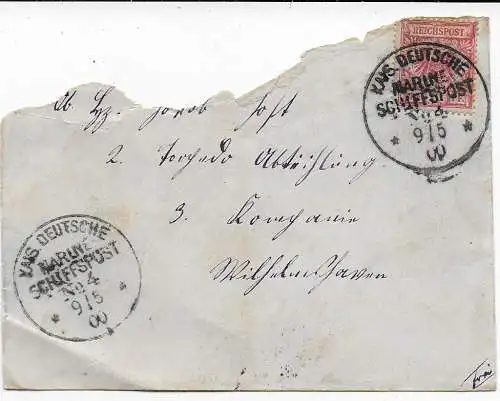 REICHSPOST
KAIS. DEUTSCHE
MARINE
SCHIFFSPOST
No 4
* 9/5 *
00
Jacob Jost
2. Torpedo Abteihlung
3. Kompanie
Wilhelmshaven
KAIS. DEUTSCHE
MARINE
SCHIFFSPOST
No 4
* 9/5 *
00